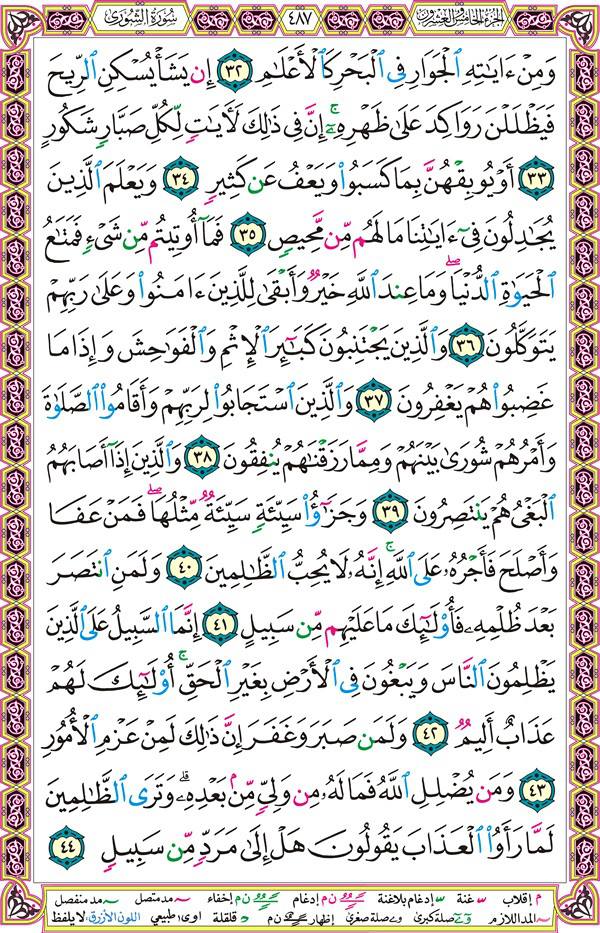 الجزء الخامس والعشرون ٤٨٧ سورة الشورى
وَمِنْ ءَايَـٰتِهِ ٱلْجَوَارِ فِى ٱلْبَحْرِ كَٱلْأَعْلَـٰمِ ٣٢ إِن يَشَأْ يُسْكِنِ ٱلرِّيحَ
فَيَظْلَلْنَ رَوَاكِدَ عَلَىٰ ظَهْرِهِۦٓ ۚ إِنَّ فِى ذَٰلِكَ لَـَٔايَـٰتٍ لِّكُلِّ صَبَّارٍ شَكُورٍ
٣٣ أَوْ يُوبِقْهُنَّ بِمَا كَسَبُوا۟ وَيَعْفُ عَن كَثِيرٍ ٣٤ وَيَعْلَمَ ٱلَّذِينَ
يُجَـٰدِلُونَ فِىٓ ءَايَـٰتِنَا مَا لَهُم مِّن مَّحِيصٍ ٣٥ فَمَآ أُوتِيتُم مِّن شَىْءٍ فَمَتَـٰعُ
ٱلْحَيَوٰةِ ٱلدُّنْيَا ۖ وَمَا عِندَ ٱللَّهِ خَيْرٌ وَأَبْقَىٰ لِلَّذِينَ ءَامَنُوا۟ وَعَلَىٰ رَبِّهِمْ
يَتَوَكَّلُونَ ٣٦ وَٱلَّذِينَ يَجْتَنِبُونَ كَبَـٰٓئِرَ ٱلْإِثْمِ وَٱلْفَوَٰحِشَ وَإِذَا مَا
غَضِبُوا۟ هُمْ يَغْفِرُونَ ٣٧ وَٱلَّذِينَ ٱسْتَجَابُوا۟ لِرَبِّهِمْ وَأَقَامُوا۟ ٱلصَّلَوٰةَ
وَأَمْرُهُمْ شُورَىٰ بَيْنَهُمْ وَمِمَّا رَزَقْنَـٰهُمْ يُنفِقُونَ ٣٨ وَٱلَّذِينَ إِذَآ أَصَابَهُمُ
ٱلْبَغْىُ هُمْ يَنتَصِرُونَ ٣٩ وَجَزَٰٓؤُا۟ سَيِّئَةٍ سَيِّئَةٌ مِّثْلُهَا ۖ فَمَنْ عَفَا
وَأَصْلَحَ فَأَجْرُهُۥ عَلَى ٱللَّهِ ۚ إِنَّهُۥ لَا يُحِبُّ ٱلظَّـٰلِمِينَ ٤٠ وَلَمَنِ ٱنتَصَرَ
بَعْدَ ظُلْمِهِۦ فَأُو۟لَـٰٓئِكَ مَا عَلَيْهِم مِّن سَبِيلٍ ٤١ إِنَّمَا ٱلسَّبِيلُ عَلَى ٱلَّذِينَ
يَظْلِمُونَ ٱلنَّاسَ وَيَبْغُونَ فِى ٱلْأَرْضِ بِغَيْرِ ٱلْحَقِّ ۚ أُو۟لَـٰٓئِكَ لَهُمْ
عَذَابٌ أَلِيمٌ ٤٢ وَلَمَن صَبَرَ وَغَفَرَ إِنَّ ذَٰلِكَ لَمِنْ عَزْمِ ٱلْأُمُورِ
٤٣ وَمَن يُضْلِلِ ٱللَّهُ فَمَا لَهُۥ مِن وَلِىٍّ مِّنۢ بَعْدِهِۦ ۗ وَتَرَى ٱلظَّـٰلِمِينَ
لَمَّا رَأَوُا۟ ٱلْعَذَابَ يَقُولُونَ هَلْ إِلَىٰ مَرَدٍّ مِّن سَبِيلٍ ٤٤
م إقلاب غنة إدغام بلاغنة ن م إدغام ن م إخفاء مد متصل مد منفصل
المد اللازم صلة كبرى صلة صغرى إظهار ن م قلقلة اوى طبيعي اللون الأزرق: لا يلفظ